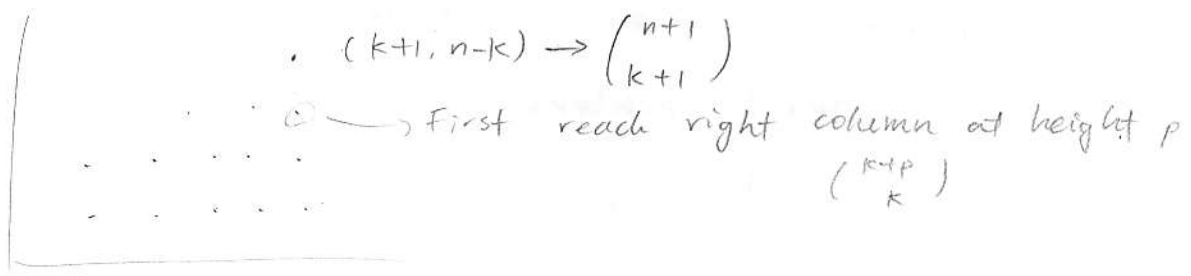 (k+1, n-k) → (n+1 k+1)
→ First reach right column at height p
(k+p k)